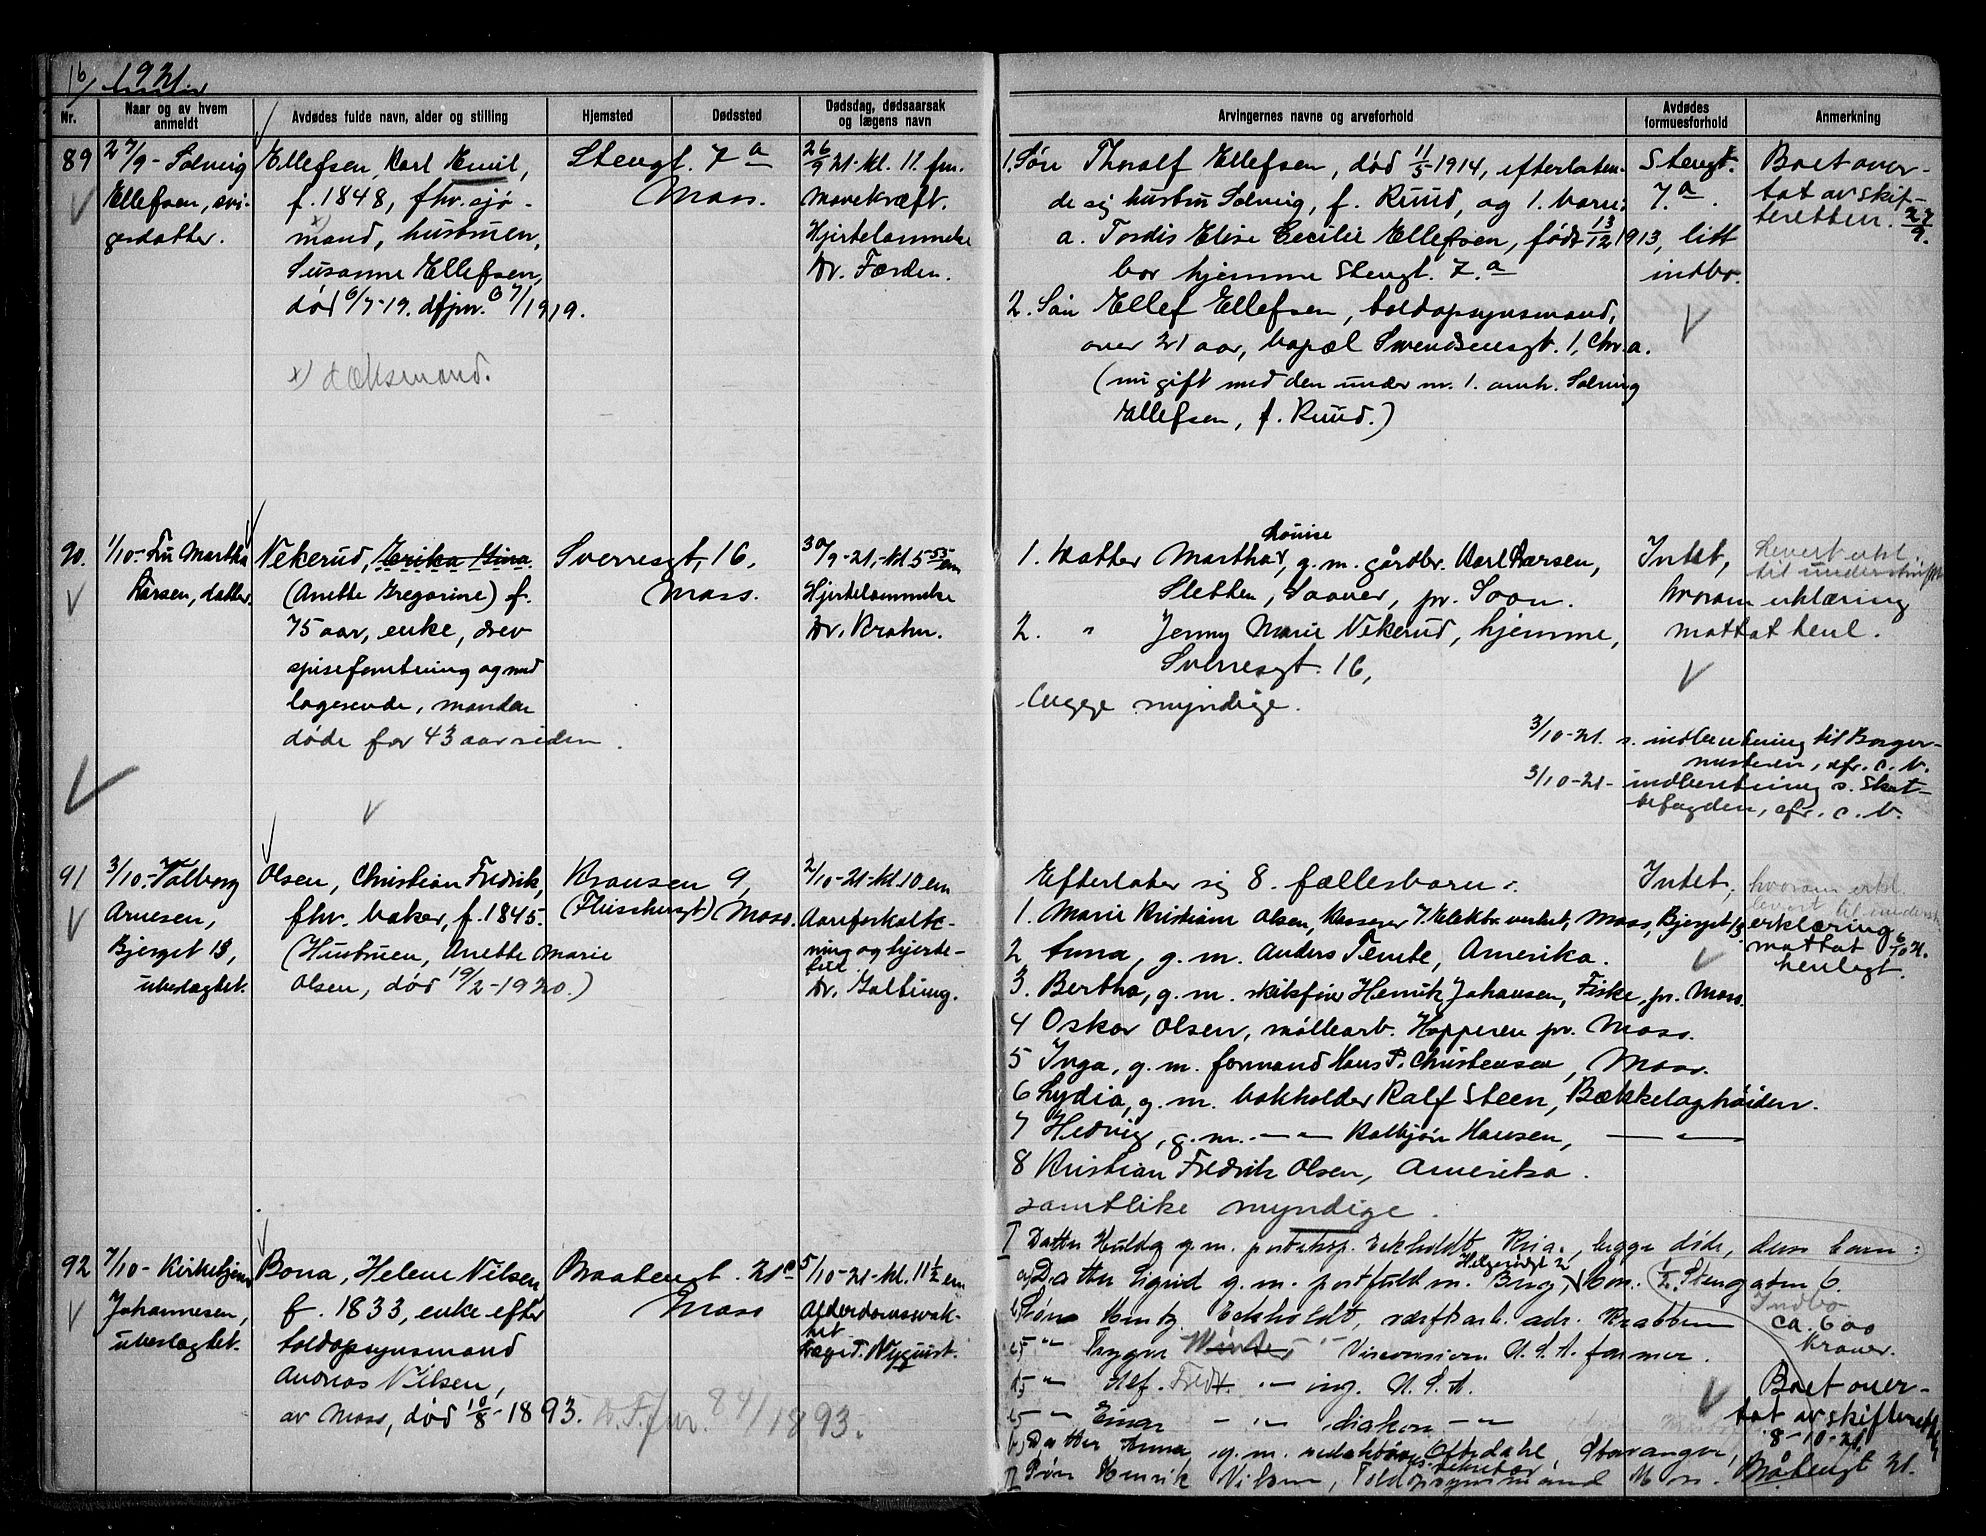 16/ 1921
Nr.
Naar og av hvem anmeldt
Avdødes fulde navn, alder og stilling
Hjemsted
Dødssted
Dødsdag, dødsaarsak og lægens navn
Arvingernes navne og arveforhold
Avdødes formuesforhold
Anmerkning
89
27/9- Solveig
Ellefsen, svi-
gerdatter.
Ellefsen, Karl Emil,
f. 1848, fhv. sjø-
mand, hustruen,
Susanne Ellefsen,
død 6/7-19. dfjnr. 67/1919.
x) dæksmand.
Stengt. 7a
Moss.
26/9 21-kl. 11. fm.
Mavekræft.
Hjertelammelse
Dr. Færden.
1. Søn Thoralf Ellefsen, død 11/5 1914, efterlaten-
de sig hustru Solveig, f. Ruud, og 1. barn:
a. Tordis Elise Cecilie Ellefsen, født 13/12 1913,
bor hjemme Stengt. 7a
2. Søn Ellef Ellefsen, toldopsynsmand,
over 21 aar, bopæl Svendsensgt. 1, Chr.a.
(nu gift med den under nr. 1. omh. Solveig
Ellefsen, f. Ruud.)
Stengt.
7a.
litt
indbo.
Boet over-
tat av skif-
teretten. 27/9.
90.
1/10- Fru Martha
Larsen, datter.
Nekerud, Erika Gina
(Anette Gregorine) f.
75 aar, enke, drev
spiseforretning og med
logerende, manden
døde for 43 aar siden.
Sverresgt. 16,
Moss.
30/9-21,-kl 5 55 em
Hjertelammelse
Dr. Krohn.
Louise
1. Datter Martha, g.m. gårdbr. Karl Larsen,
Sletten, Saaner, pr. Soon.
2. " Jenny Marie Nekerud, hjemme,
Sverresgt. 16,
begge myndige.
Intet,
hvorom erklæring
mottat henl.
3/10-21. s. indberetning til Borger-
mesteren, cfr. c. b.
3/10-21- indberetning s. Skat-
befogden, cfr. c. b.
91
3/10.-Valborg
Arnesen,
Bjerget 13,
ubeslægtet.
Olsen, Christian Fredrik,
fhv. baker, f. 1845.
(Hustruen, Anette Marie
Olsen, død 19/2-1920.)
Kransen 9,
Moss.
2/10-21-kl. 10 em
Aareforkalk-
ning og hjerte-
feil
Dr. Galtung.
Efterlater sig 8. fællesbarn:
1. Marie Kristiane Olsen, kasserer v. Elektr. verket, Moss, Bjerget 13.
2 Anna, g. m. Anders Temte, Amerika.
3. Bertha, g. m. Henrik Johansen, Fiske, pr. Moss.
4 Oskar Olsen, møllearb. Hoppern pr. Moss.
5 Inga, g. m. formand Hans P. Christensen, Moss.
6 Lydia, g. m. bokholder Ralf Steen, Bækkelagshøiden.
7 Hedvig, g. m. — " — Kolbjørn Hansen, — " —
8 Kristian Fredrik Olsen, Amerika.
samtlike myndige.
Intet,
hvorom erkl.
erklæring
mottat 6/10 21.
henlagt.
92
7/10- Kirketjener
Johannesen,
ubeslægtet.
Bona, Helene Nilsen,
f. 1833, enke efter
toldopsynsmand
Andreas Nilsen,
av Moss, død 10/8-1893.
84/1893.
Braatengt. 21c
Moss
5/10-21-kl. 11 1/2 em
Alderdomssvak-
het
Læge T. Nyquist.
I Datter Hulda g. m. Eckholdt, Kria., begge døde, deres barn:
a) Datter Sigrid g. m. postfuldm. Helgerødgt 2
Søn Eckholdt, værftsarb. adr. Krabben
" Trygve " Visconsien U.S.A. farmer.
" Alf. Fredr. " ing. U.S.A.
" Einar " " diakon " "
Datter Anna, g. m. redaktør Oftedahl, Stavanger,
II Søn Henrik Nilsen, Toldopsynsmand Moss. Bråtengt 21.
1/2 Stengaten 6.
Indbo
ca. 600
kroner.
Boet over-
tat av skifteretten
8-10-21.